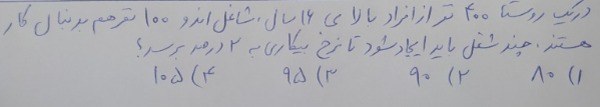 در یک روستا ۴۰۰ نفر از افراد بالای ۱۶ سال، شاغل اند و ۱۰۰ نفر هم به دنبال کار
هستند. چند شغل باید ایجاد شود تا نرخ بیکاری به ۲ درصد برسد؟
۱) ۸۰ ۲) ۹۰ ۳) ۹۵ ۴) ۱۰۵